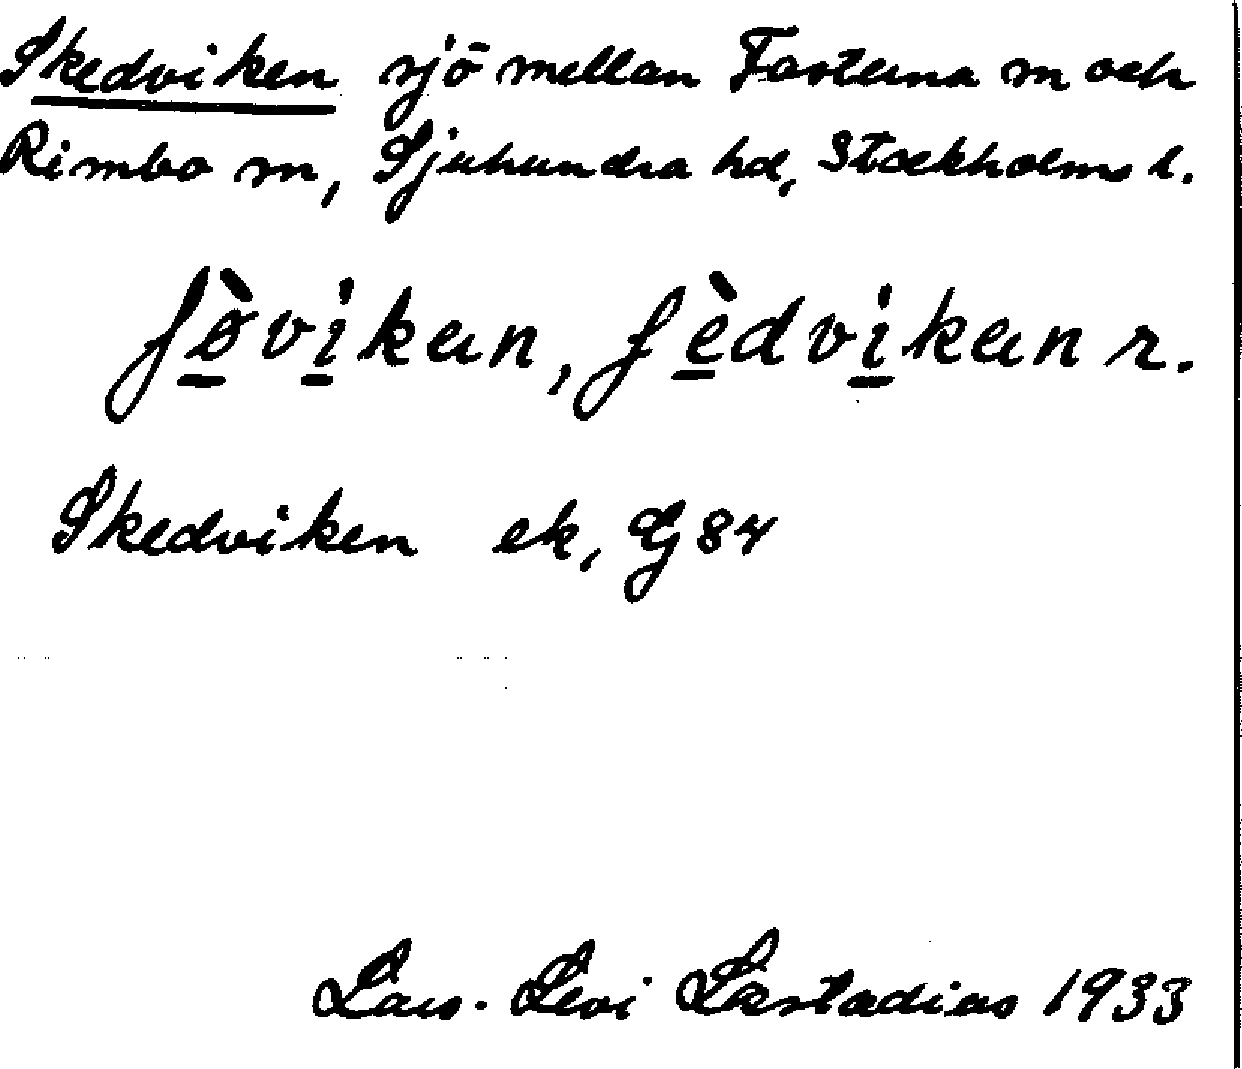 Skedviken sjö mellan Fasterna sn och
Rimbo sn, Sjuhundra hd, Stockholms l.
ʃø̀vikan, ʃèdvikan r.
Skedviken ek, G 84
Lars-Levi Læstadius 1933